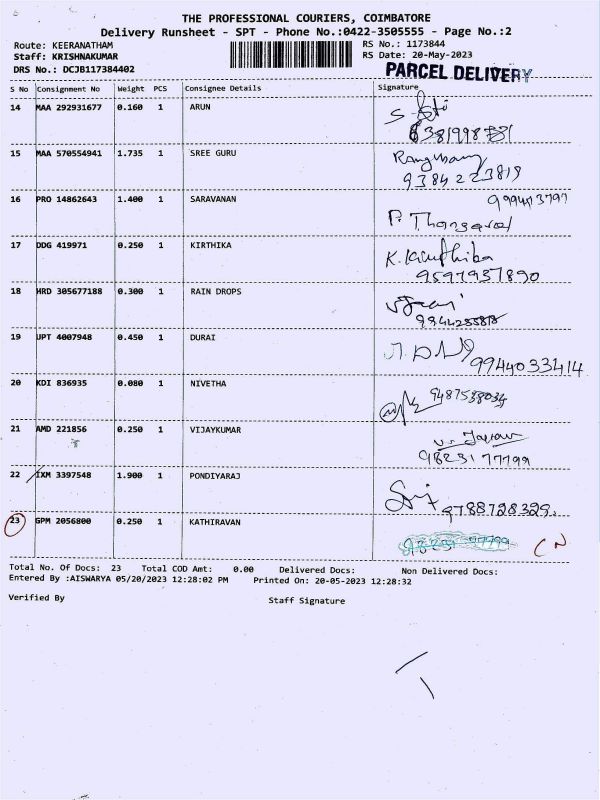 THE PROFESSIONAL COURIERS, COIMBATORE
Delivery Runsheet - SPT - Phone No.:0422-3505555 - Page No.:2
Route: KEERANATHAM RS No.: 1173844
Staff: KRISHNAKUMAR RS Date: 20-May-2023
DRS No.: DCJB117384402 PARCEL DELIVERY
S No Consignment No Weight PCS Consignee Details Signature
14 MAA 292931677 0.160 1 ARUN
15 MAA 570554941 1.735 1 SREE GURU
9384223819
16 PRO 14862643 1.400 1 SARAVANAN
P. Thangavel
17 DDG 419971 0.250 1 KIRTHIKA
K. Kiruthika
9597937890
18 HRD 305677188 0.300 1 RAIN DROPS
19 UPT 4007948 0.450 1 DURAI
9944033414
20 KDI 836935 0.080 1 NIVETHA
9487538034
21 AMD 221856 0.250 1 VIJAYKUMAR
22 IXM 3397548 1.900 1 PONDIYARAJ
9788728329.
23 GPM 2056800 0.250 1 KATHIRAVAN
CN
Total No. Of Docs: 23 Total COD Amt: 0.00 Delivered Docs: Non Delivered Docs:
Entered By :AISWARYA 05/20/2023 12:28:02 PM Printed On: 20-05-2023 12:28:32
Verified By Staff Signature